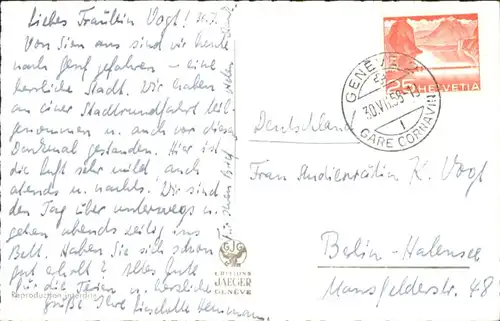 Liebes Fräulein Vogt! 30.7.
Von Sion aus sind wir heute
nach Genf gefahren – eine
herrliche Stadt. Wir haben
an einer Stadtrundfahrt teil-
genommen u. auch vor diesem
Denkmal gestanden. Hier ist
die Luft sehr mild auch
abends u. nachts. Wir sind
den Tag über unterwegs u.
gehen abends zeitig ins
Bett. Haben Sie sich schon
gut erholt? Alles Gute
für die Ferien u. herzliche
Grüße Ihre Lieselotte
Für Ihren Brief vielen Dank
Reproduction interdite
GJG
EDITIONS
JAEGER
GENÈVE
GENÈVE 2
30.VII.58
GARE CORNAVIN
25
HELVETIA
Deutschland
Frau Studienrätin K. Vogt
Berlin-Halensee
Mansfelderstr. 48